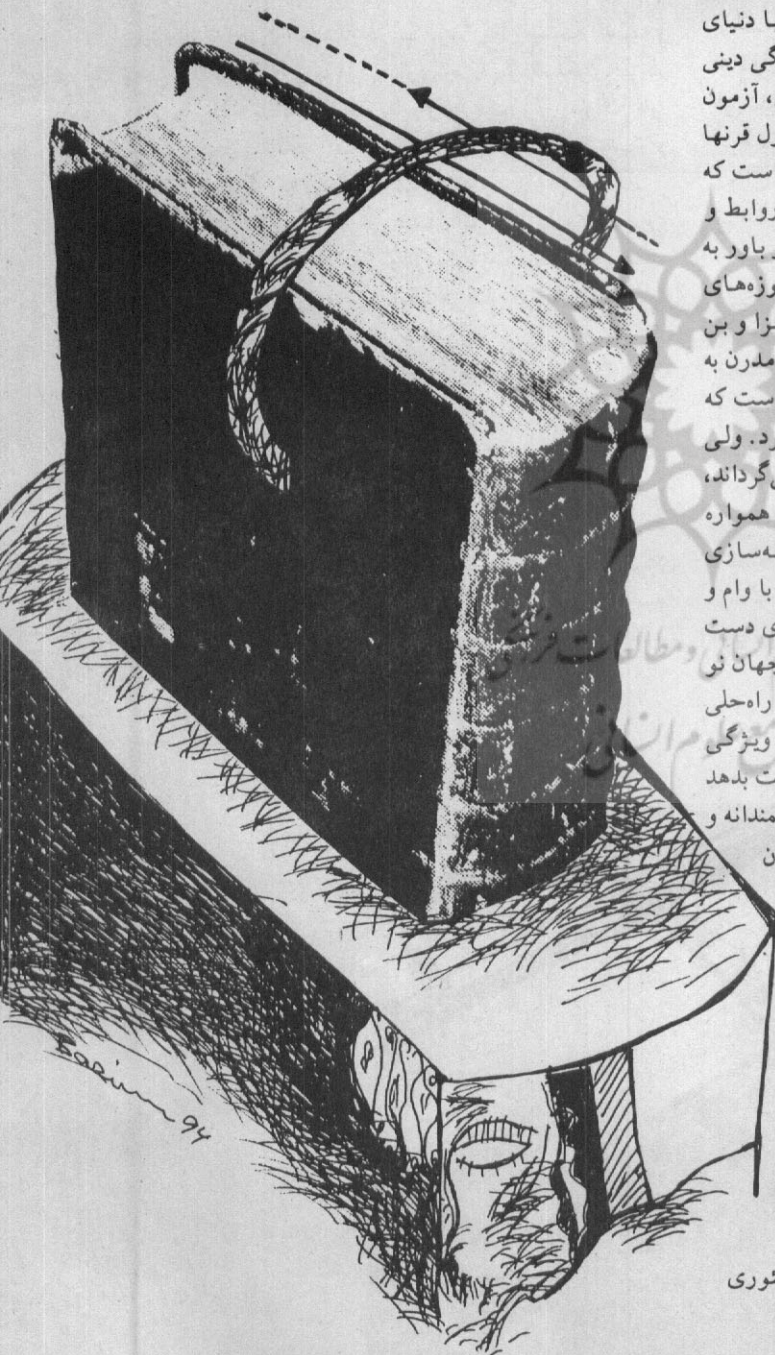 ـا دنیای
گی دینی
، آزمون
ول قرنها
است که
روابط و
ر باور به
وزه‌های
نزا و بن
مدرن به
ست که
رد. ولی
ی‌گرداند،
همواره
ه‌سازی
با وام و
ی دست
جهان نو
راه‌حلی
ویژگی
ت بدهد
مندانه و
ن
انسانی و مطالعات فرهنگی
مع علوم انسانی
94
ئوری